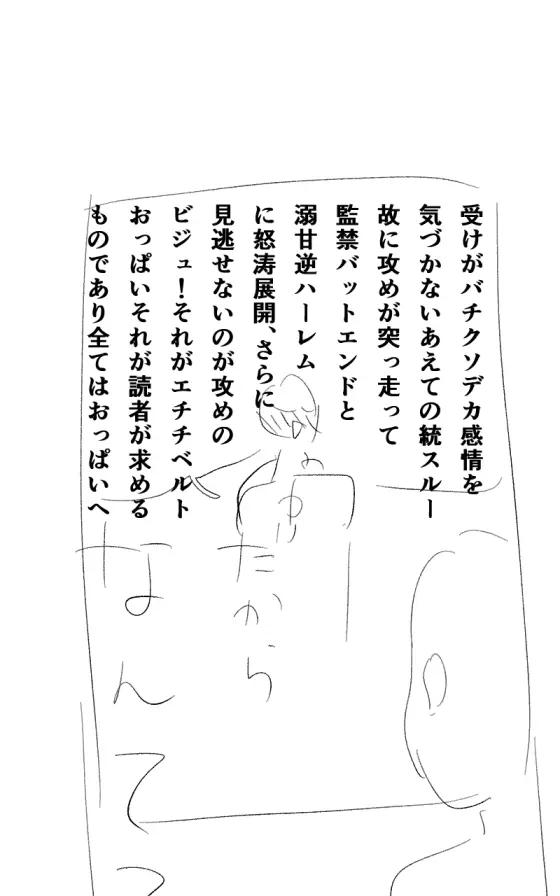 受けがバチクソデカ感情を
気づかないあえての統スルー
故に攻めが突っ走って
監禁バットエンドと
溺甘逆ハーレム
に怒涛展開、さらに
見逃せないのが攻めの
ビジュ！それがエチチベルト
おっぱいそれが読者が求める
ものであり全てはおっぱいへ
だから
なんて